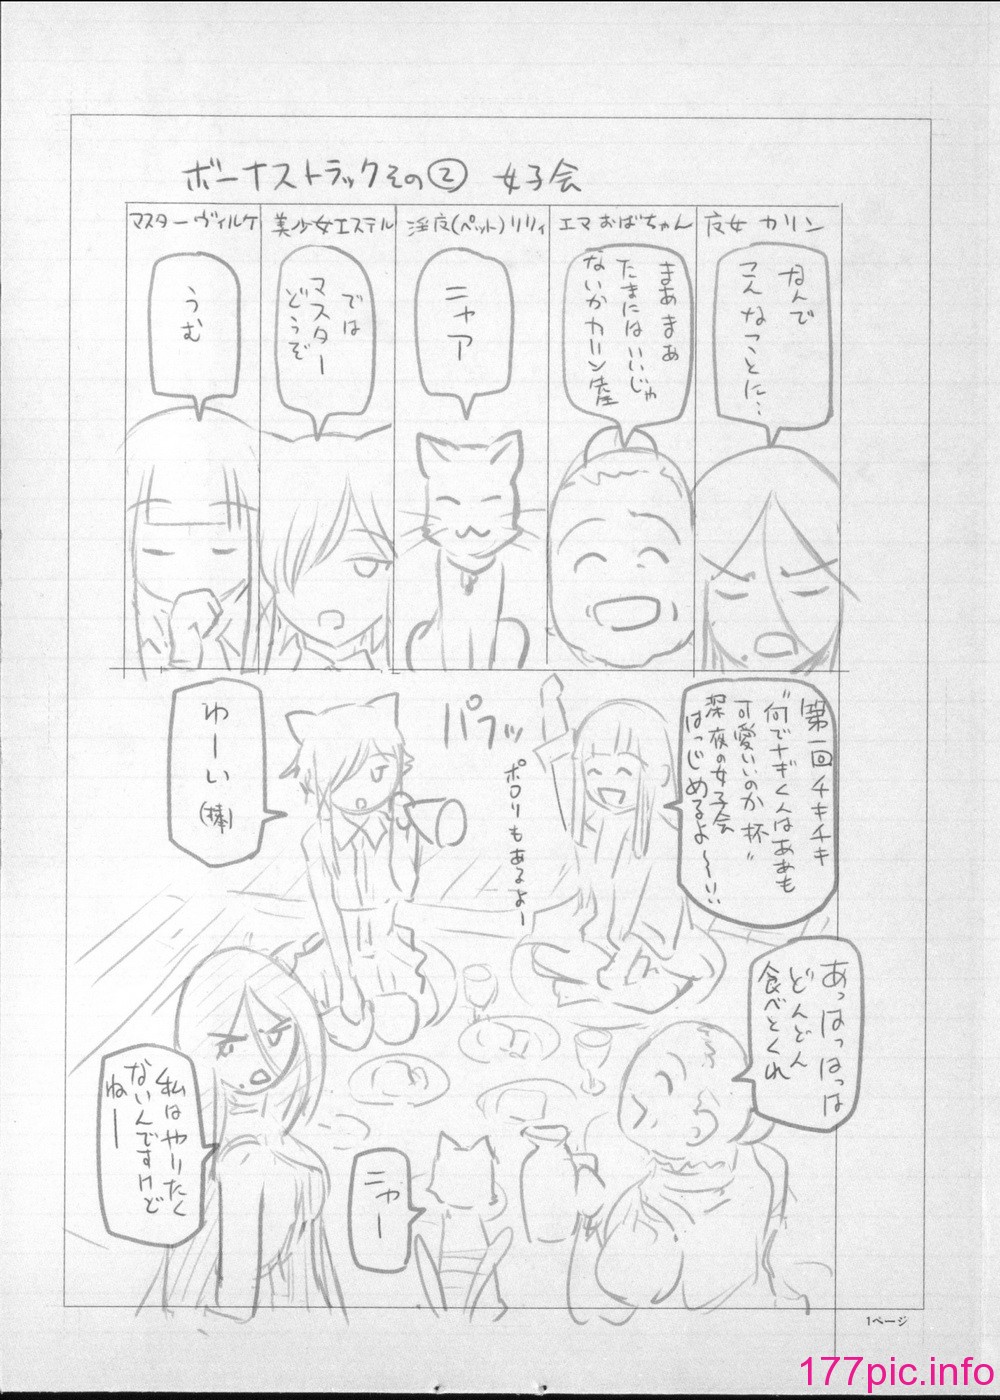 ボーナストラックその② 女子会
皮女 カリン
なんで
こんなことに…
エマ おばちゃん
まあまあ
たまにはいいじゃ
ないかカリン産
淫皮(ペット)リリィ
ニャア
美少女エステル
では
マスター
どうぞ
マスターヴィルケ
うむ
第一回チキチキ
"何でナギくんはああも
可愛いいのか 杯"
深夜の女子会
はっじめるよ〜〜!!
パフッ
ポロリもあるよー
わーい
(棒)
あっはっはっは
どんどん
食べとくれ
私はやりたく
ないんですけど
ねー
ニャー
1ページ
177pic.info